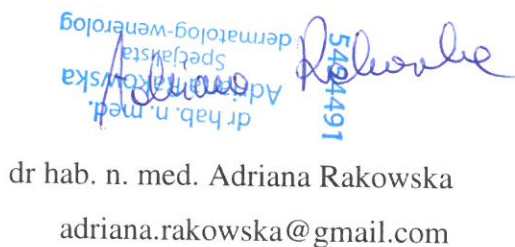 dr hab. n. med.
Adriana Rakowska
Specjalista
dermatolog-wenerolog
5494491
Adriana Rakowska
dr hab. n. med. Adriana Rakowska
adriana.rakowska@gmail.com